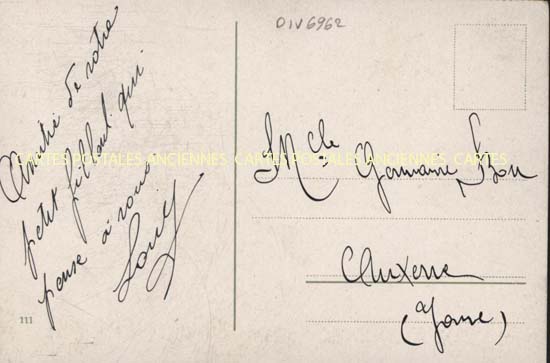 DIV6962
Amitié de votre
petit filleul qui
pense à vous
Mlle Germaine
CARTES POSTALES ANCIENNES CARTES POSTALES ANCIENNES CARTES
Auxerre
(Yonne)
111